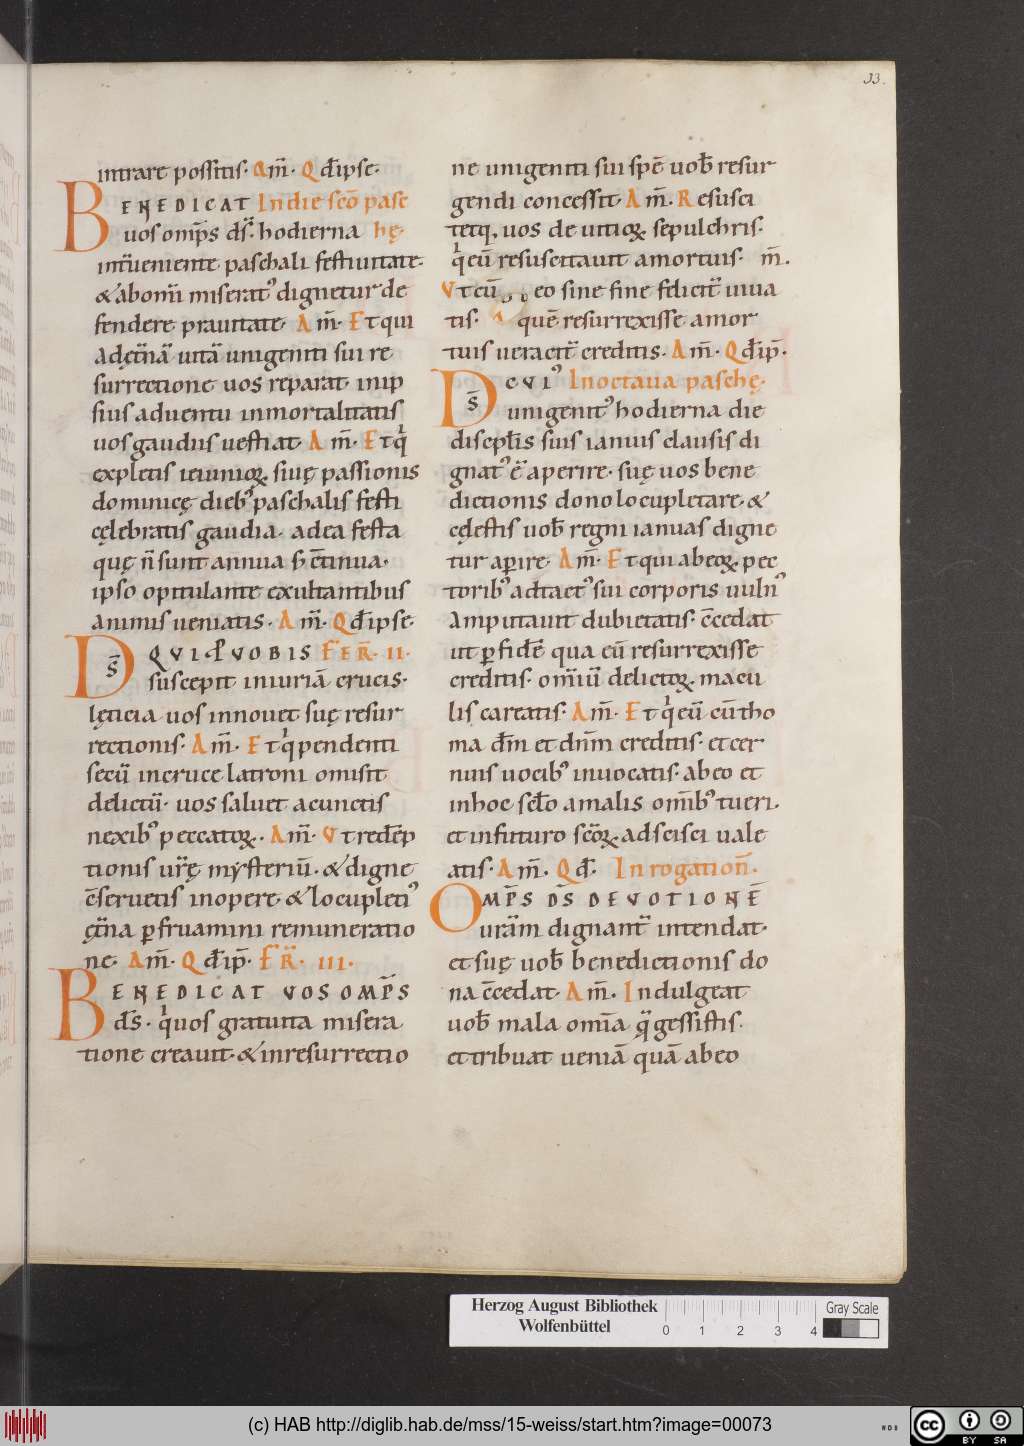 33.
intrare possitis. Am̄. Qd̄ ipse.
BENEDICAT In die sc̄o pasc
uos omp̄s ds̄. hodierna hę.
int̄ueniente paschali festiuitate.
& ab om̄i miserat᾽ dignetur de
fendere prauitate. Am̄. Et qui
ad ęt̄nā uitā unigeniti sui re
surrectione uos reparat. in ip
sius aduentu inmortalitatis
uos gaudiis uestiat. Am̄. Et qͥ
expletis ieiunioꝝ siuę passionis
dominicę dieb᾽ paschalis festi
cęlebratis gaudia. ad ea festa
quę n̄ sunt annua s; c̄tinua.
ipso opitulante exultantibus
animis ueniatis. Am̄. Qd̄ ipse.
DS̄ QUI P UOBIS FER̄. II.
suscepit iniuriā crucis.
lęticia uos innouet suę resur
rectionis. Am̄. Et qͥ pendenti
secū in cruce latroni omisit
delictū. uos saluet a cunctis
nexib᾽ peccatoꝝ. Am̄. Ut redēp
tionis ur̄ę mysteriū. & digne
c̄seruetis in opere. & locupleti᾽
ęt̄na ꝑfruamini remuneratio
ne. Am̄. Qd̄ ip̄. FR̄. III.
BENEDICAT UOS OMP̄S
ds̄. qͥ uos gratuita misera
tione creauit. & in resurrectio
ne unigeniti sui spē uob̄ resur
gendi concessit. Am̄. Resusci
tetq, uos de uitioꝝ sepulchris.
qͥ eū resuscitauit a mortuis. m̄.
Ut cū eo sine fine felicit̄ uiua
tis. quē resurrexisse a mor
tuis ueracit̄ creditis. Am̄. Qd̄ ip̄.
DS̄ CUI᾽ In octaua paschę.
unigenit᾽ hodierna die
discipl̄is suis ianuis clausis di
gnat᾽ ē aperire. suę uos bene
dictionis dono locupletare. &
cęlestis uob̄ regni ianuas digne
tur apire. Am̄. Et qui ab eoꝝ pec
torib᾽ ad tact᾽ sui corporis uuln᾽
amputauit dubietatis. c̄cedat
ut ꝑ fidē qua eū resurrexisse
creditis. omīū delictoꝝ macu
lis careatis. Am̄. Et qͥ eū cū tho
ma dm̄ et dnm̄ creditis. et cer
nuis uocib᾽ inuocatis. ab eo et
in hoc scl̄o a malis omīb᾽ tueri.
et in futuro sc̄oꝝ adscisci uale
atis. Am̄. Qd̄. In rogation̄.
OMP̄S DS̄ DEUOTIONĒ
urām dignant̄ intendat.
et suę uob̄ benedictionis do
na c̄cedat. Am̄. Indulgeat
uob̄ mala omīa q̄ gessistis.
et tribuat ueniā quā ab eo
Herzog August Bibliothek
Wolfenbüttel
0 1 2 3 4
Gray Scale
(c) HAB http://diglib.hab.de/mss/15-weiss/start.htm?image=00073
cc BY SA